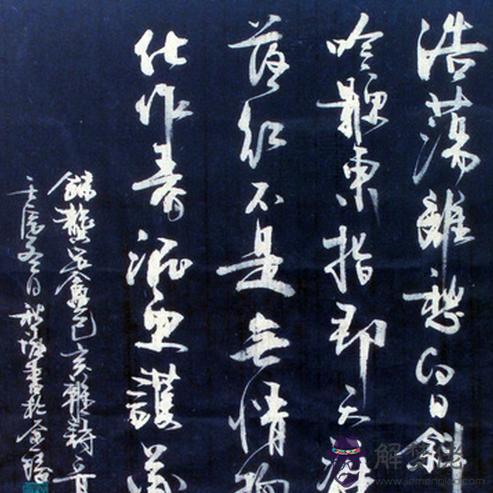 浩蕩離愁白日斜
吟鞭東指即天涯
落紅不是無情物
化作春泥更護花
錄龔定盦己亥雜詩
冬日書於金陵
解梦佬